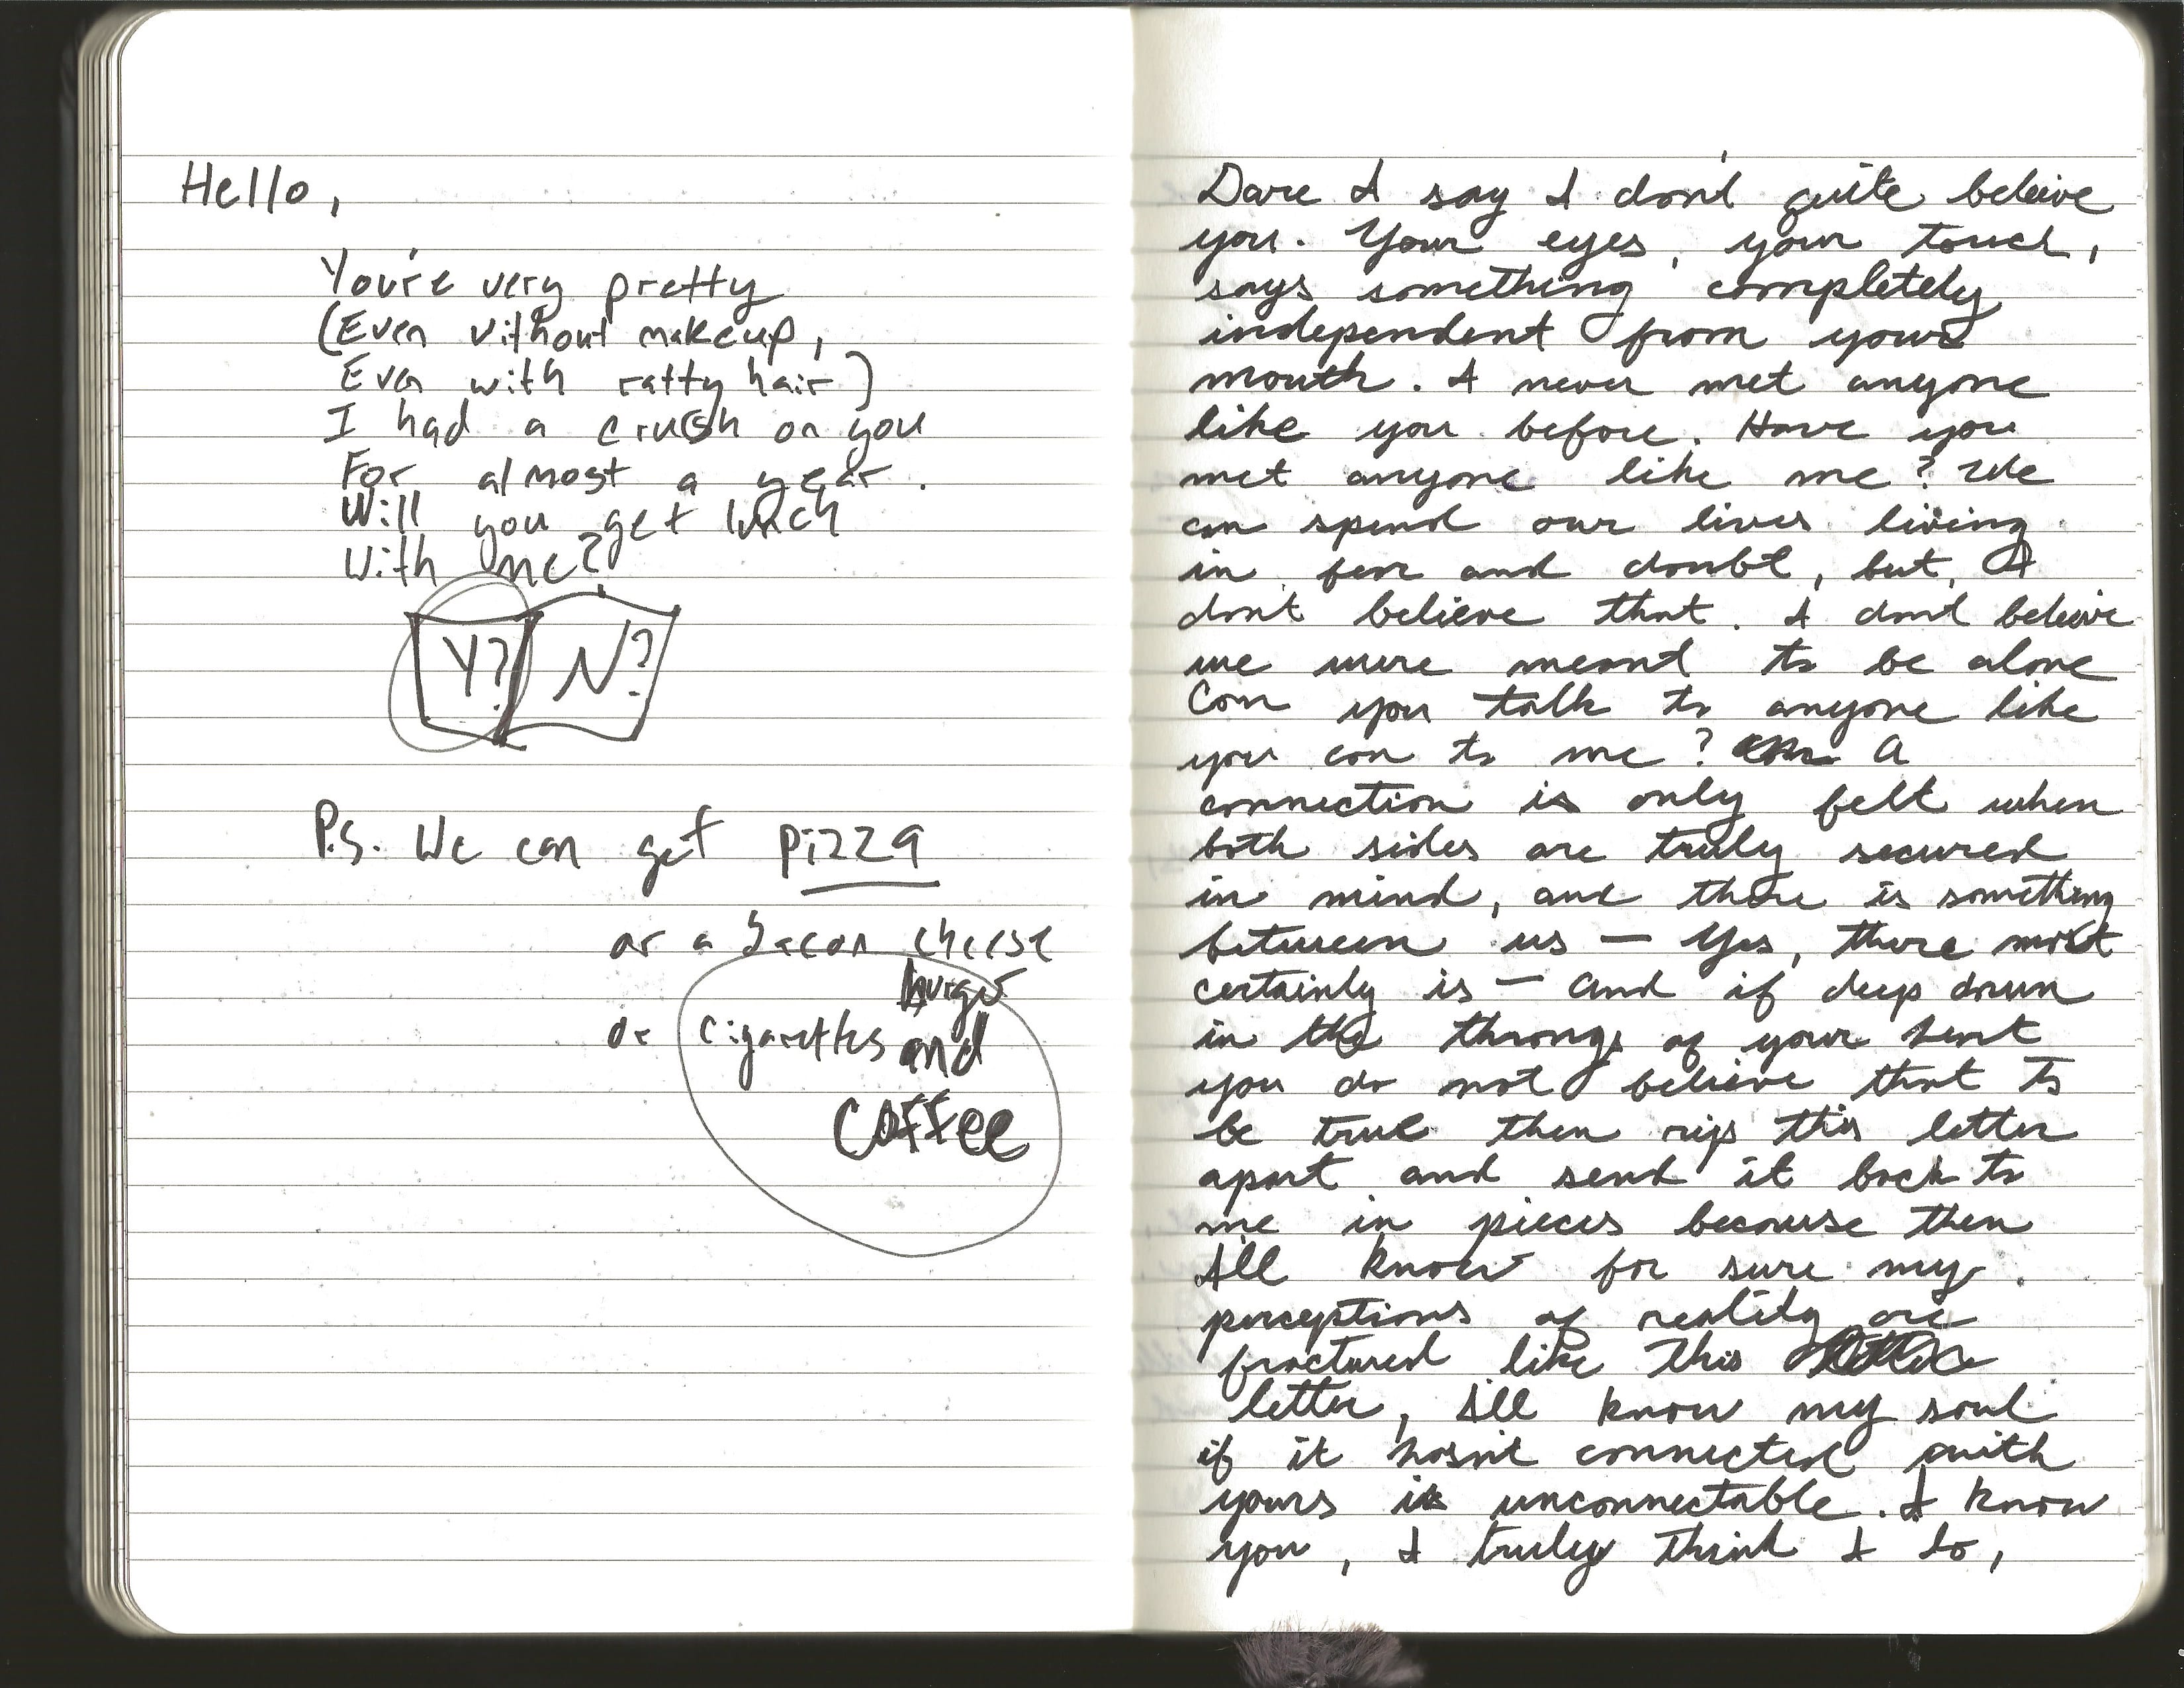 Hello,
You're very pretty
(Even without makeup,
Even with ratty hair)
I had a crush on you
For almost a year.
Will you get lunch
With me?
Y? N?
P.S. We can get pizza
or a bacon cheese
burger
or cigarettes and
coffee
Dare I say I don't quite beleive
you. Your eyes, your touch,
says something completely
independent from your
mouth. I never met anyone
like you before. Have you
met anyone like me? We
can spend our lives living
in fear and doubt, but, I
don't believe that. I don't beleive
we were meant to be alone
Can you talk to anyone like
you can to me? A
connection is only felt when
both sides are truly secured
in mind, and there is something
between us — Yes, there most
certainly is — and if deep down
in the throngs of your
you do not believe that to
be true then rip this letter
apart and send it back to
me in pieces because then
I'll know for sure my
perceptions of reality are
fractured like this
letter, I'll know my soul
if it hasn't connected with
yours is unconnectable. I know
you, I truly think I do,